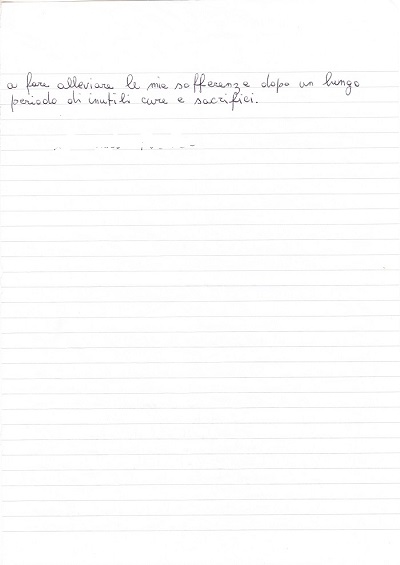 a fare alleviare le mie sofferenze dopo un lungo
periodo di inutili cure e sacrifici.